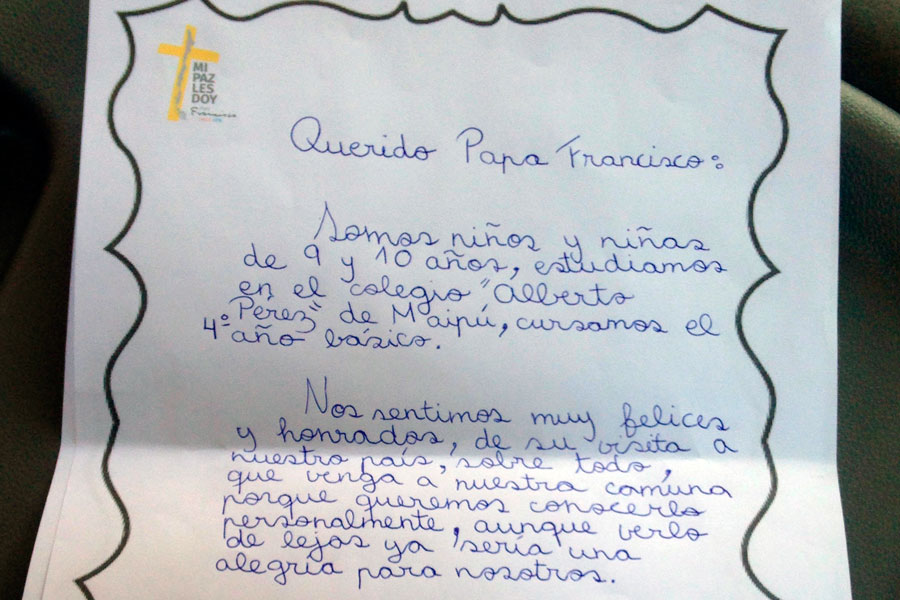 MI
PAZ
LES
DOY
Francisco
Querido Papa Francisco:
Somos niños y niñas
de 9 y 10 años, estudiamos
en el colegio "Alberto
Pérez" de Maipú, cursamos el
4º año básico.
Nos sentimos muy felices
y honrados, de su visita a
nuestro país, sobre todo,
que venga a nuestra comuna
porque queremos conocerlo
personalmente, aunque verlo
de lejos ya sería una
alegría para nosotros.